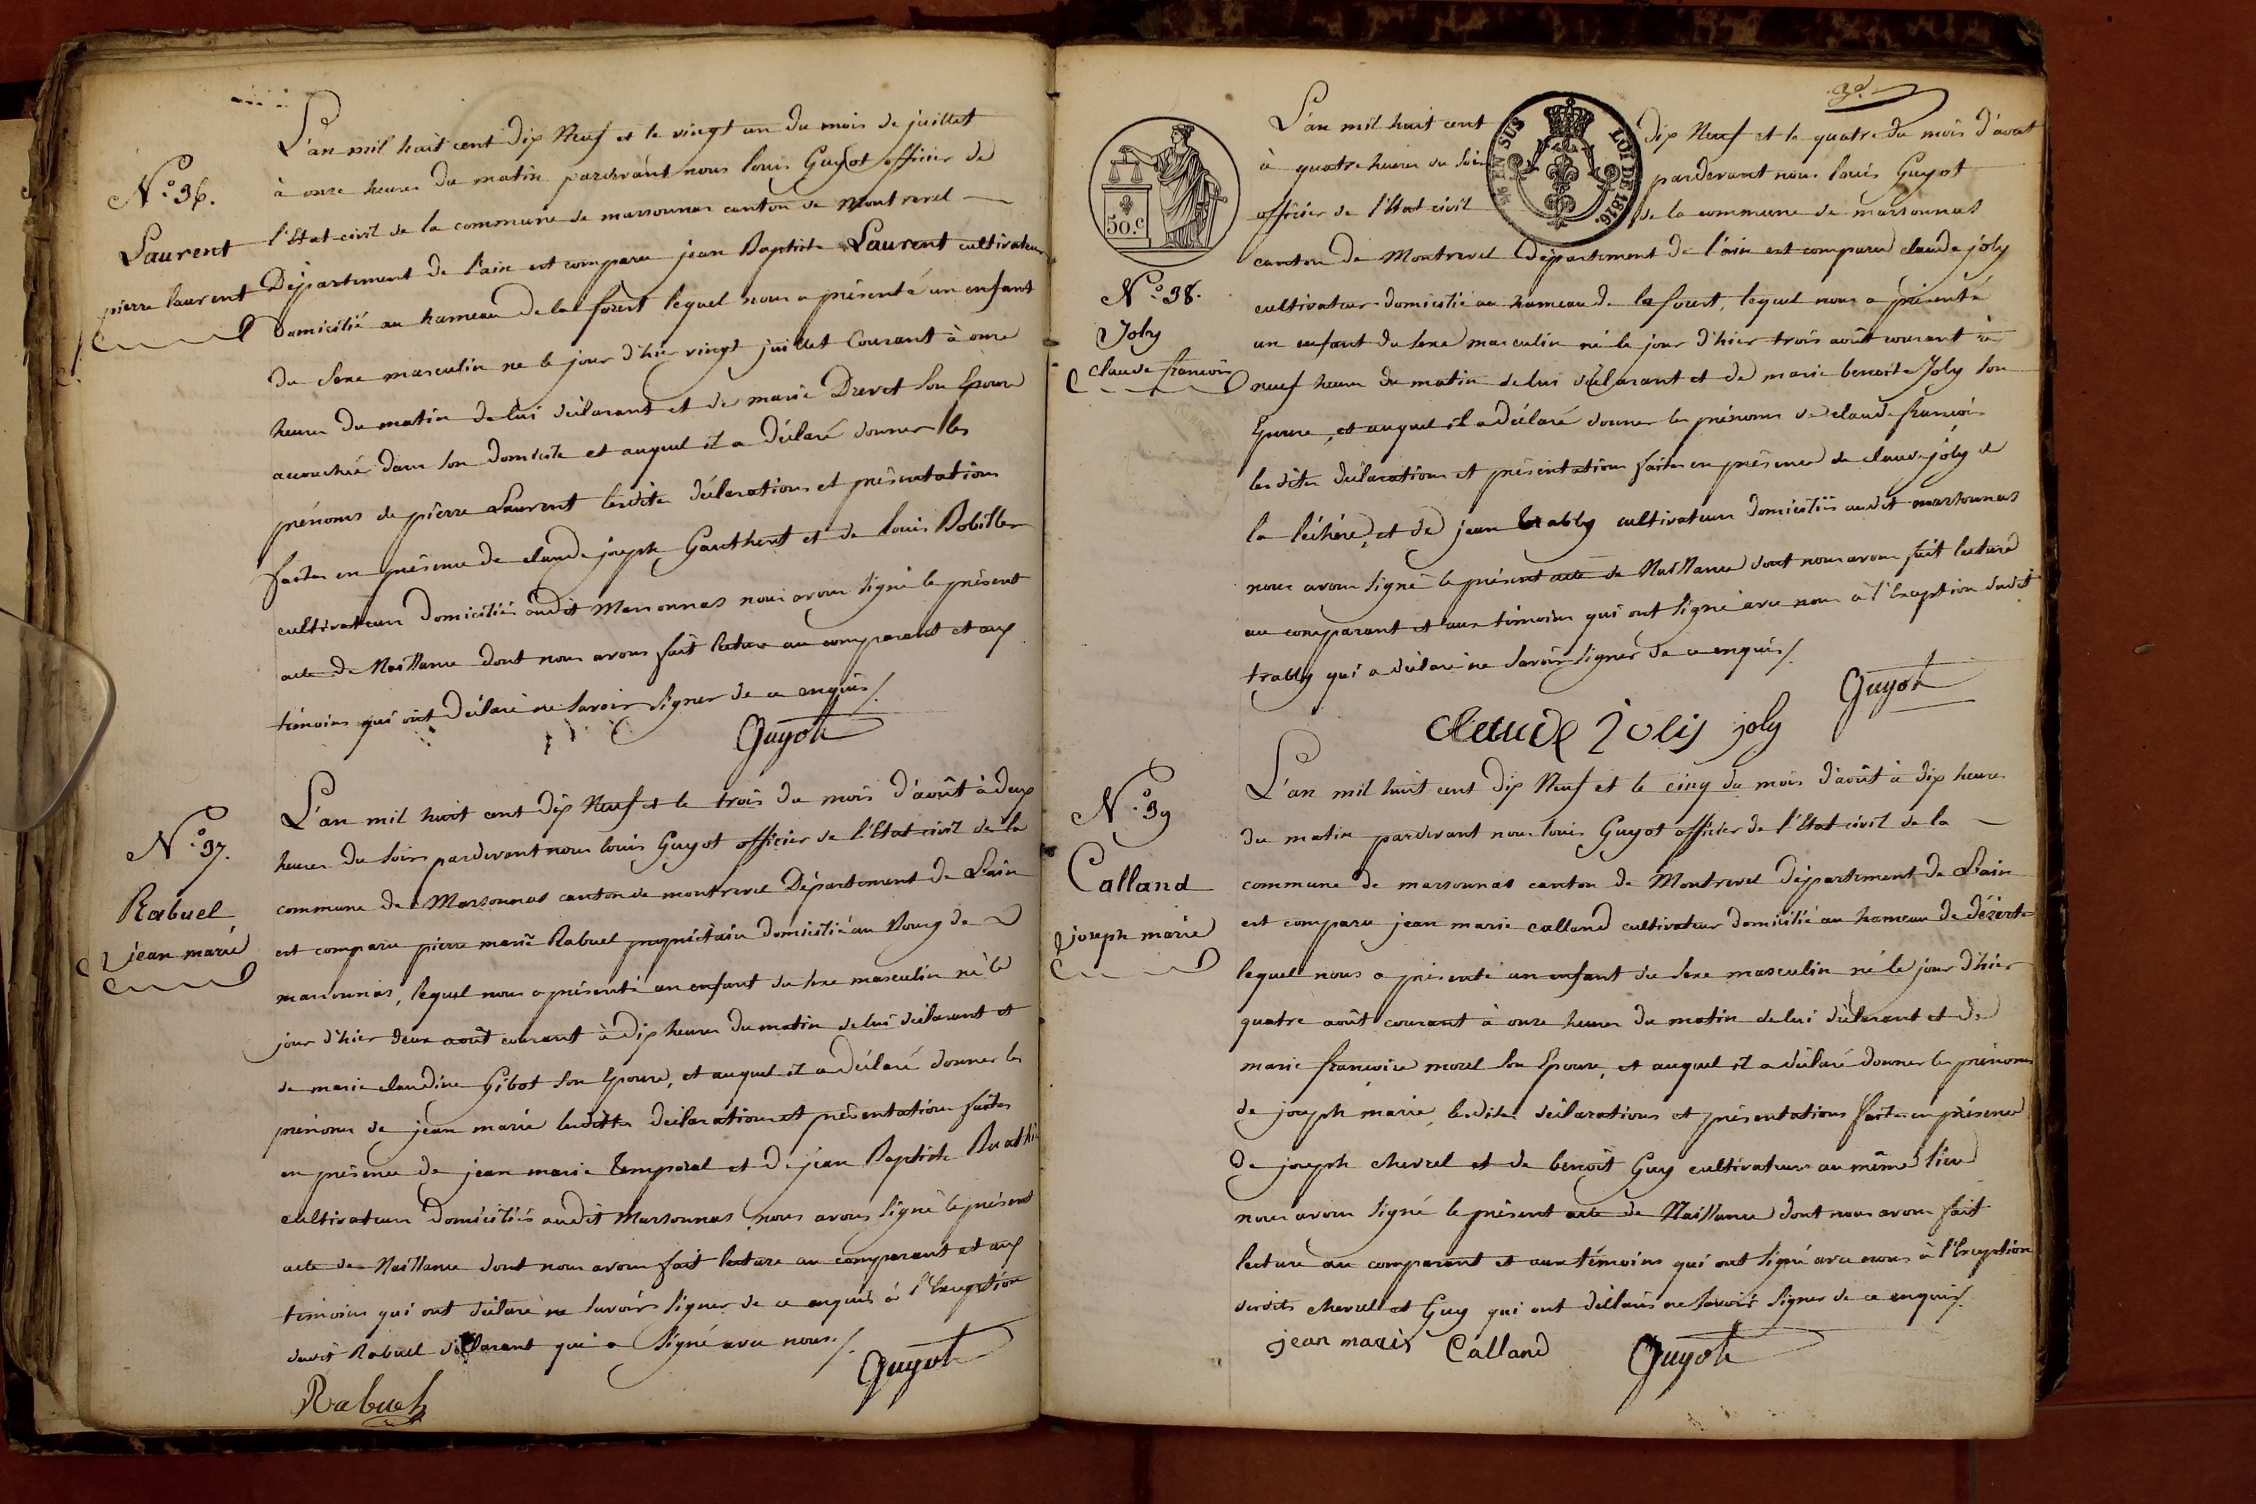 N.o 36.
Laurent
pierre laurent
L'an mil huit cent dix Neuf et le vingt un du mois de juillet
à onze heures du matin pardevant nous louis Guyot officier de
l'Etat-civil de la commune de marsonnas canton de Montrevel
Département de l'ain est comparu jean Baptiste Laurent cultivateur
domicilié au hameau de la fouret lequel nous a présenté un enfant
du sexe masculin né le jour d'hier vingt juillet Courant à onze
heures du matin de lui déclarant et de marie Drevet son Epouse
accouchée dans son domicile et auquel il a déclaré donner les
prénoms de pierre Laurent lesdites déclarations et présentations
faites en présence de claude joseph Gauthent et de louis Bobillon
cultivateurs domiciliés audit Marsonnas nous avons signé le présent
acte de Naissance dont nous avons fait lecture au comparant et aux
témoins qui ont déclaré ne savoir signer de ce enquis /.
Guyot
N.o 37.
Rabuel
jean marie
L'an mil huit cent dix Neuf et le trois du mois d'août à deux
heures du soir pardevant nous louis Guyot officier de l'Etat-civil de la
commune de Marsonnas canton de montrevel Département de L'ain
est comparu pierre marie Rabuel propriétaire domicilié au Bourg de
marsonnas, lequel nous a présenté un enfant du sexe masculin né le
jour d'hier deux août courant à dix heures du matin de lui déclarant et
de marie claudine Gibot son Epouse, et auquel il a déclaré donner les
prénoms de jean marie lesdites déclarations et présentations faites
en présence de jean marie Temporal et de jean Baptiste
cultivateurs domiciliés audit Marsonnas nous avons signé le présent
acte de Naissance dont nous avons fait lecture au comparant et aux
témoins qui ont déclaré ne savoir signer de ce enquis à l'Exception
dudit Rabuel déclarant qui a signé avec nous /.
Rabuel Guyot
50.c
EN SUS LOI DE 1816.
N.o 38.
Joly
claude françois
L'an mil huit cent dix Neuf et le quatre du mois d'août
à quatre heures du soir pardevant nous louis Guyot
officier de l'Etat civil de la commune de marsonnas
canton de Montrevel département de l'ain est comparu claude joly
cultivateur domicilié au hameau de la fouret, lequel nous a présenté
un enfant du sexe masculin né le jour d'hier trois août courant à
neuf heures du matin de lui déclarant et de marie benoite Joly son
Epouse, et auquel il a déclaré donner les prénoms de claude françois
lesdites déclarations et présentations faites en présence de claude joly de
la léchère, et de jean trably cultivateurs domiciliés audit marsonnas
nous avons signé le présent acte de Naissance dont nous avons fait lecture
au comparant et aux témoins qui ont signé avec nous à l'Exception dudit
trably qui a déclaré ne savoir signer de ce enquis /.
Guyot
Claude Joly joly
N.o 39
Calland
joseph marie
L'an mil huit cent dix Neuf et le cinq du mois d'août à dix heures
du matin pardevant nous louis Guyot officier de l'Etat civil de la
commune de marsonnas canton de Montrevel département de L'ain
est comparu jean marie calland cultivateur domicilié au hameau de dézerte
lequel nous a présenté un enfant du sexe masculin né le jour d'hier
quatre août courant à onze heures du matin de lui déclarant et de
marie françoise morel son Epouse, et auquel il a déclaré donner les prénoms
de joseph marie, lesdites déclarations et présentations faites en présence
de joseph chevrel et de benoit Guy cultivateurs au même lieu
nous avons signé le présent acte de Naissance dont nous avons fait
lecture au comparant et aux témoins qui ont signé avec nous à l'Exception
desdits chevrel et Guy qui ont déclarés ne savoir signer de ce enquis /.
jean marie Calland Guyot